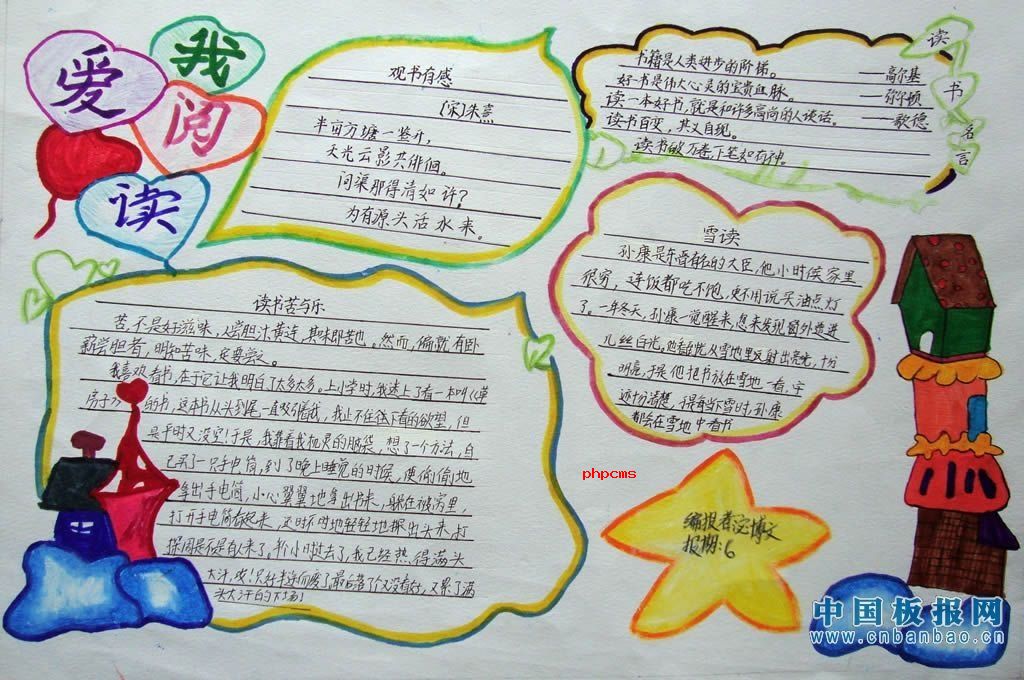 我
爱
阅
读
观书有感
(宋)朱熹
半亩方塘一鉴开,
天光云影共徘徊。
问渠那得清如许?
为有源头活水来。
读
书
名
言
书籍是人类进步的阶梯。 ——高尔基
好书是伟大心灵的宝贵血脉。 ——弥尔顿
读一本好书,就是和许多高尚的人谈话。 ——歌德
读书百变,其义自现。
读书破万卷,下笔如有神。
雪读
孙康是东晋有名的大臣,他小时侯家里
很穷,连饭都吃不饱,更不用说买油点灯
了。一年冬天,孙康一觉醒来,忽来发现窗外透进
几丝白光,他看
从雪地里反射出
十分
明亮,于是他把书放在雪地一看,字
还十分清楚,
当下雪时,孙康
都会在雪地中看书
读书苦与乐
苦,不是好滋味,人尝胆汁黄连,其味即苦也。然而,偏数有卧
薪尝胆者,明知苦味,定要尝之。
我喜欢看书,在于它让我明白了太多太多。上小学时,我迷上了看一本叫《草
房子》的书,这本书从头到尾一直吸引着我,我止不住往下看的欲望,但
是平时又没空!于是,我靠着我机灵的脑袋,想了一个方法,自
己买了一只手电筒,到了晚上睡觉的时候,便偷偷地
拿出手电筒,小心翼翼地拿出书来,躲在被窝里,
打开手电筒看起来,还时不时地轻轻地探出头来,打
探周是不是有人来了,
小时过去了,我已经热得满头
大汗,
又累了满
头大汗的下场!
phpcms
编报者:沈博文
报期:6
中国板报网
www.cnbanbao.cn